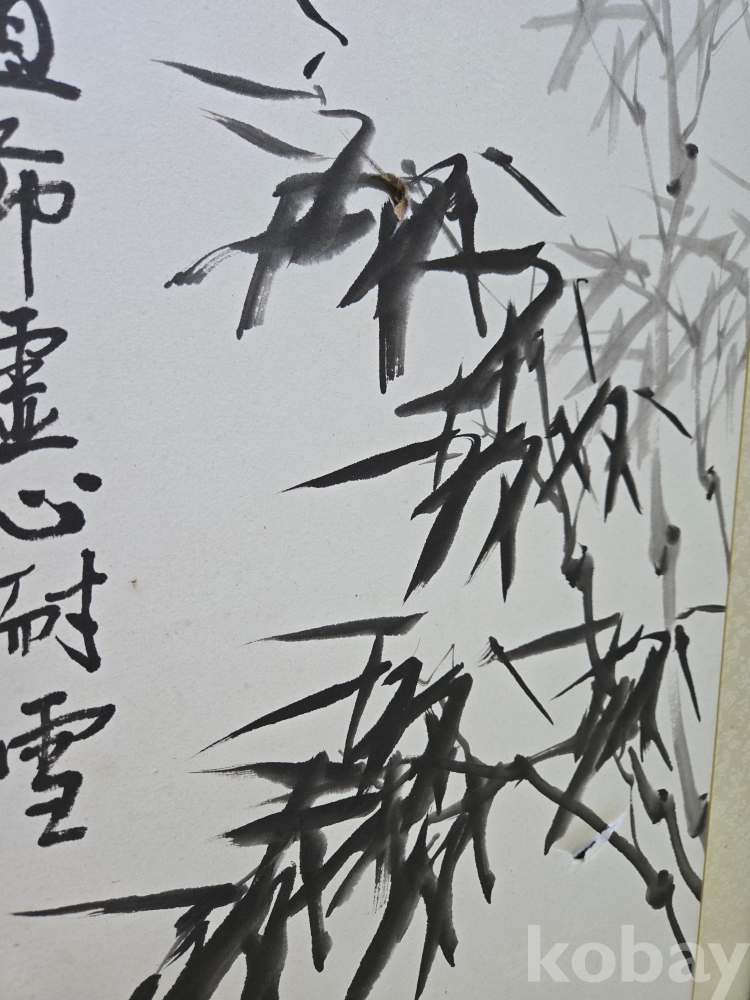 虛心耐雪
kobay